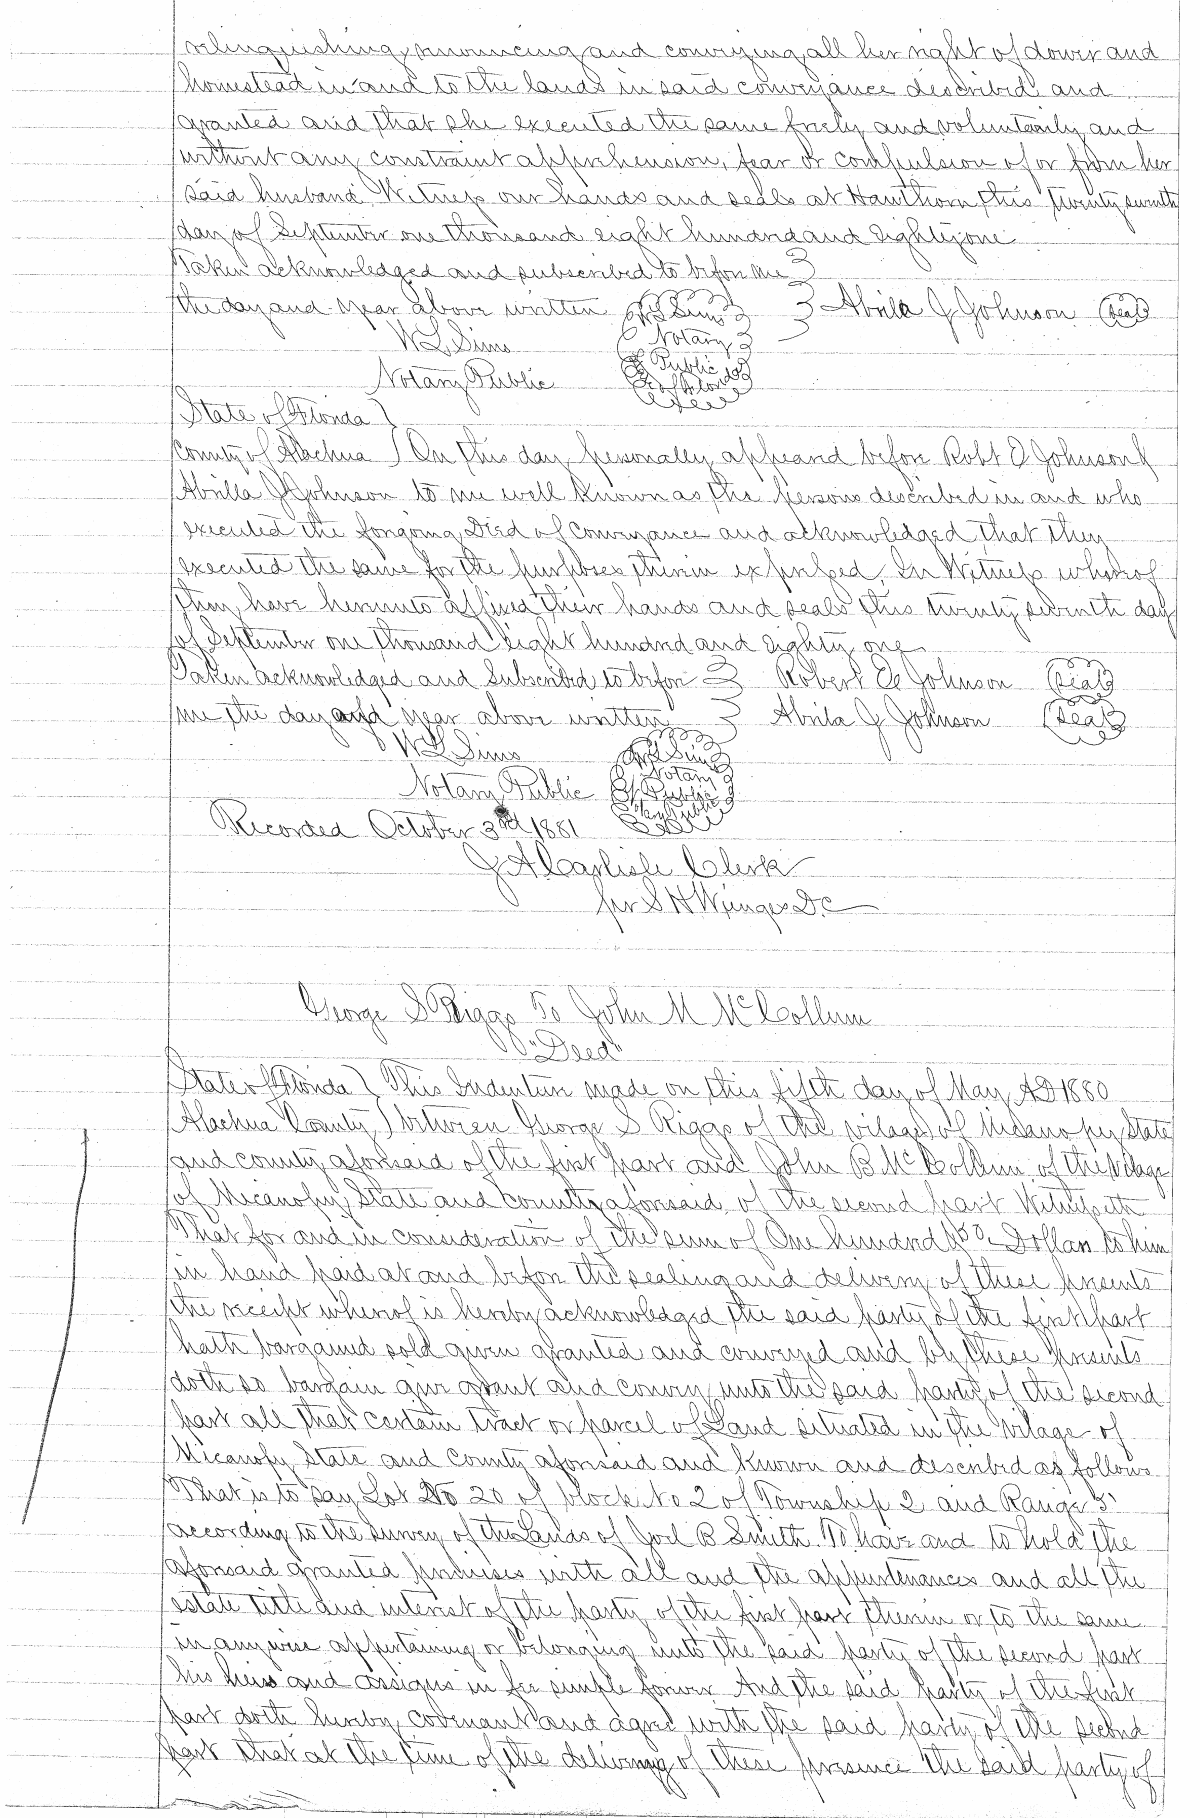 relinquishing, renouncing and conveying all her right of dower and
homestead in and to the lands in said conveyance described and
granted and that she executed the same freely and voluntarily and
without any constraint apprehension, fear or compulsion of or from her
said husband Witness our hands and seals at Hawthorn this twenty seventh
day of September one thousand eight hundred and eighty one
Taken acknowledged and subscribed to before me
the day and year above written W L Sims Abrila J Johnson Seal
W L Sims Notary
Notary Public Public
State of Florida
County of Alachua On this day personally appeared before Robt E Johnson &
Abrilla J Johnson to me well known as the persons described in and who
executed the forgoing Deed of Conveyance and acknowledged that they
executed the same for the purposes therein expressed. In Witness whereof
they have hereunto affixed their hands and seals this twenty seventh day
of September one thousand eight hundred and eighty one
Taken acknowledged and Subscribed to before Robert E Johnson Seal
me the day and year above written Abrila J Johnson Seal
W L Sims W L Sims
Notary Public Notary Public
Recorded October 3rd 1881
J A Carlisle Clerk
per S H Wienges D.C
George S Riggs To John M McCollum
"Deed"
State of Florida This Indenture made on this fifth day of May AD 1880
Alachua County between George S Riggs of the village of Micanopy State
and county aforesaid of the first part and John B McCollum of the Village
of Micanopy State and County aforesaid of the second part Witnesseth
That for and in consideration of the sum of One hundred & 50 Dollars to him
in hand paid at and before the sealing and delivery of these presents
the receipt whereof is hereby acknowledged the said party of the first part
hath bargained sold given granted and conveyed and by these presents
doth so bargain give grant and convey unto the said party of the second
part all that certain tract or parcel of Land situated in the village of
Micanopy State and County aforesaid and known and described as follows
That is to say Lot No 20 of block No 2 of Township 2 and Range 5
according to the survey of the Lands of Joel B Smith. To have and to hold the
aforesaid granted premises with all and the appurtenances and all the
estate title and interest of the party of the first part therein or to the same
in anywise appertaining or belonging unto the said party of the second part
his heirs and assigns in fee simple forever And the said party of the first
part doth hereby covenant and agree with the said party of the second
part that at the time of the delivering of these presence the said party of